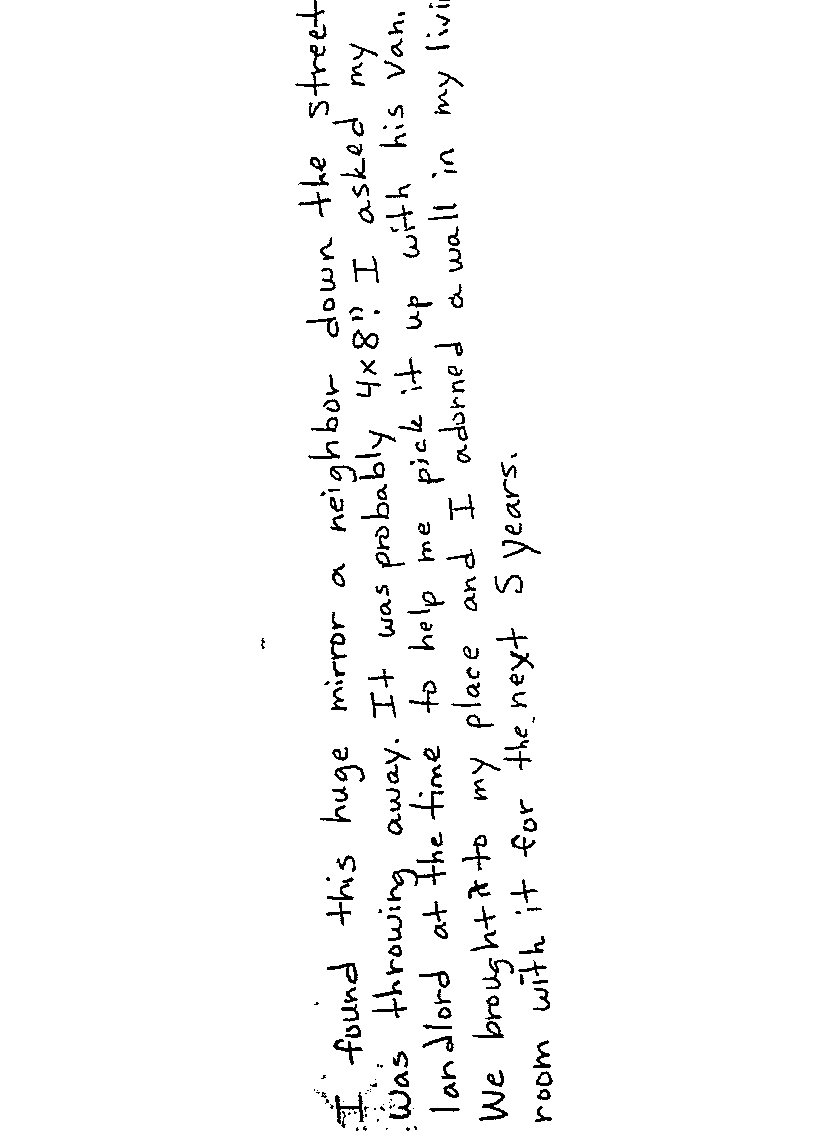 I found this huge mirror a neighbor down the street
was throwing away. It was probably 4x8". I asked my
landlord at the time to help me pick it up with his van.
We brought it to my place and I adorned a wall in my livi
room with it for the next 5 years.